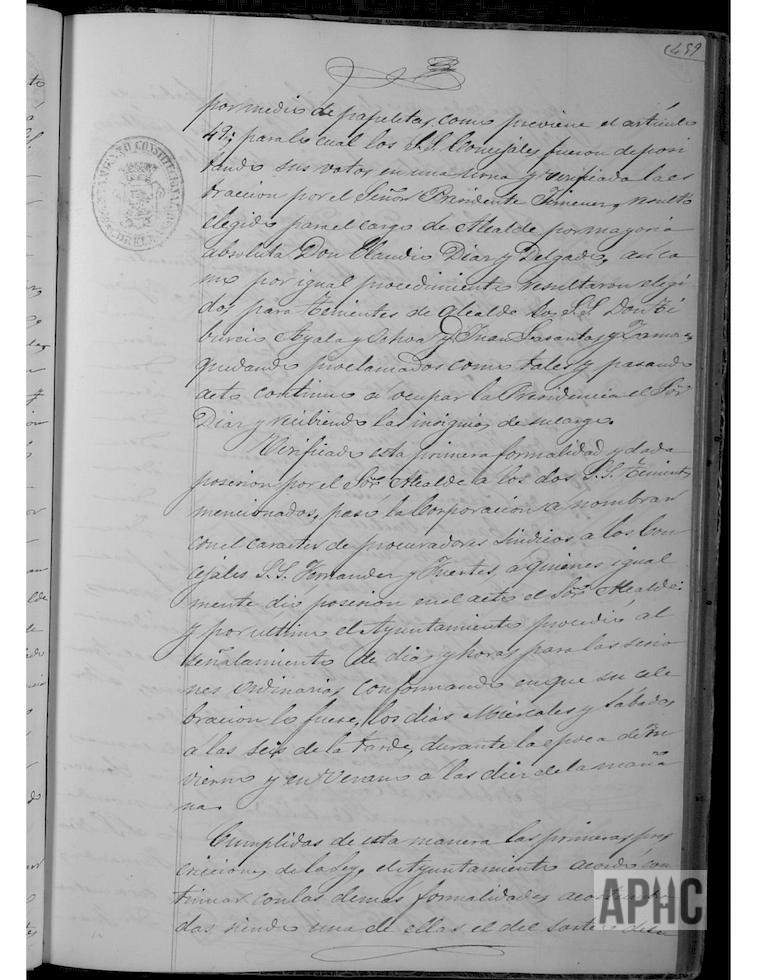 459
por medio de papeletas, como previene el artículo
49; para lo cual los S.S. Concejales fueron deposi
tando sus votos en una urna y verificada la es
traccion por el Señor Presidente Jimenez, resultó
elegido para el cargo de Alcalde por mayoria
absoluta Don Claudio Diaz y Delgado, asi co
mo por igual procedimiento resultaron elegi
dos para Tenientes de Alcalde los S.S. Don Ti
burcio Ayala y Ochoa y D. Juan Lasantas y
quedando proclamados como tales y pasando
acto continuo a ocupar la Presidencia el Sor
Diaz y recibiendo las insignias de su cargo.
Verificada esta primera formalidad y dada
posesion por el Sor Alcalde a los dos S.S. Tenientes
mencionados, pasó la Corporacion a nombrar
con el caracter de procuradores Sindicos a los Con
cejales S.S. Fernandez y Fuertes a quienes igual
mente dio posesion en el acto el Sor Alcalde:
y por ultimo el Ayuntamiento procedió al
señalamiento de dias y horas para las sesio
nes ordinarias conformando en que su cele
bracion lo fuese, los dias Miercoles y Sábados
a las seis de la tarde, durante la época de In
vierno y en Verano a las diez de la maña
na.
Cumplidas de esta manera las primeras pres
cricciones de la ley, el Ayuntamiento acordó con
tinuar con las demas formalidades acostumbra
das siendo una de ellas el del sorteo
AYUNTAMIENTO CONSTITUCIONAL
APHC